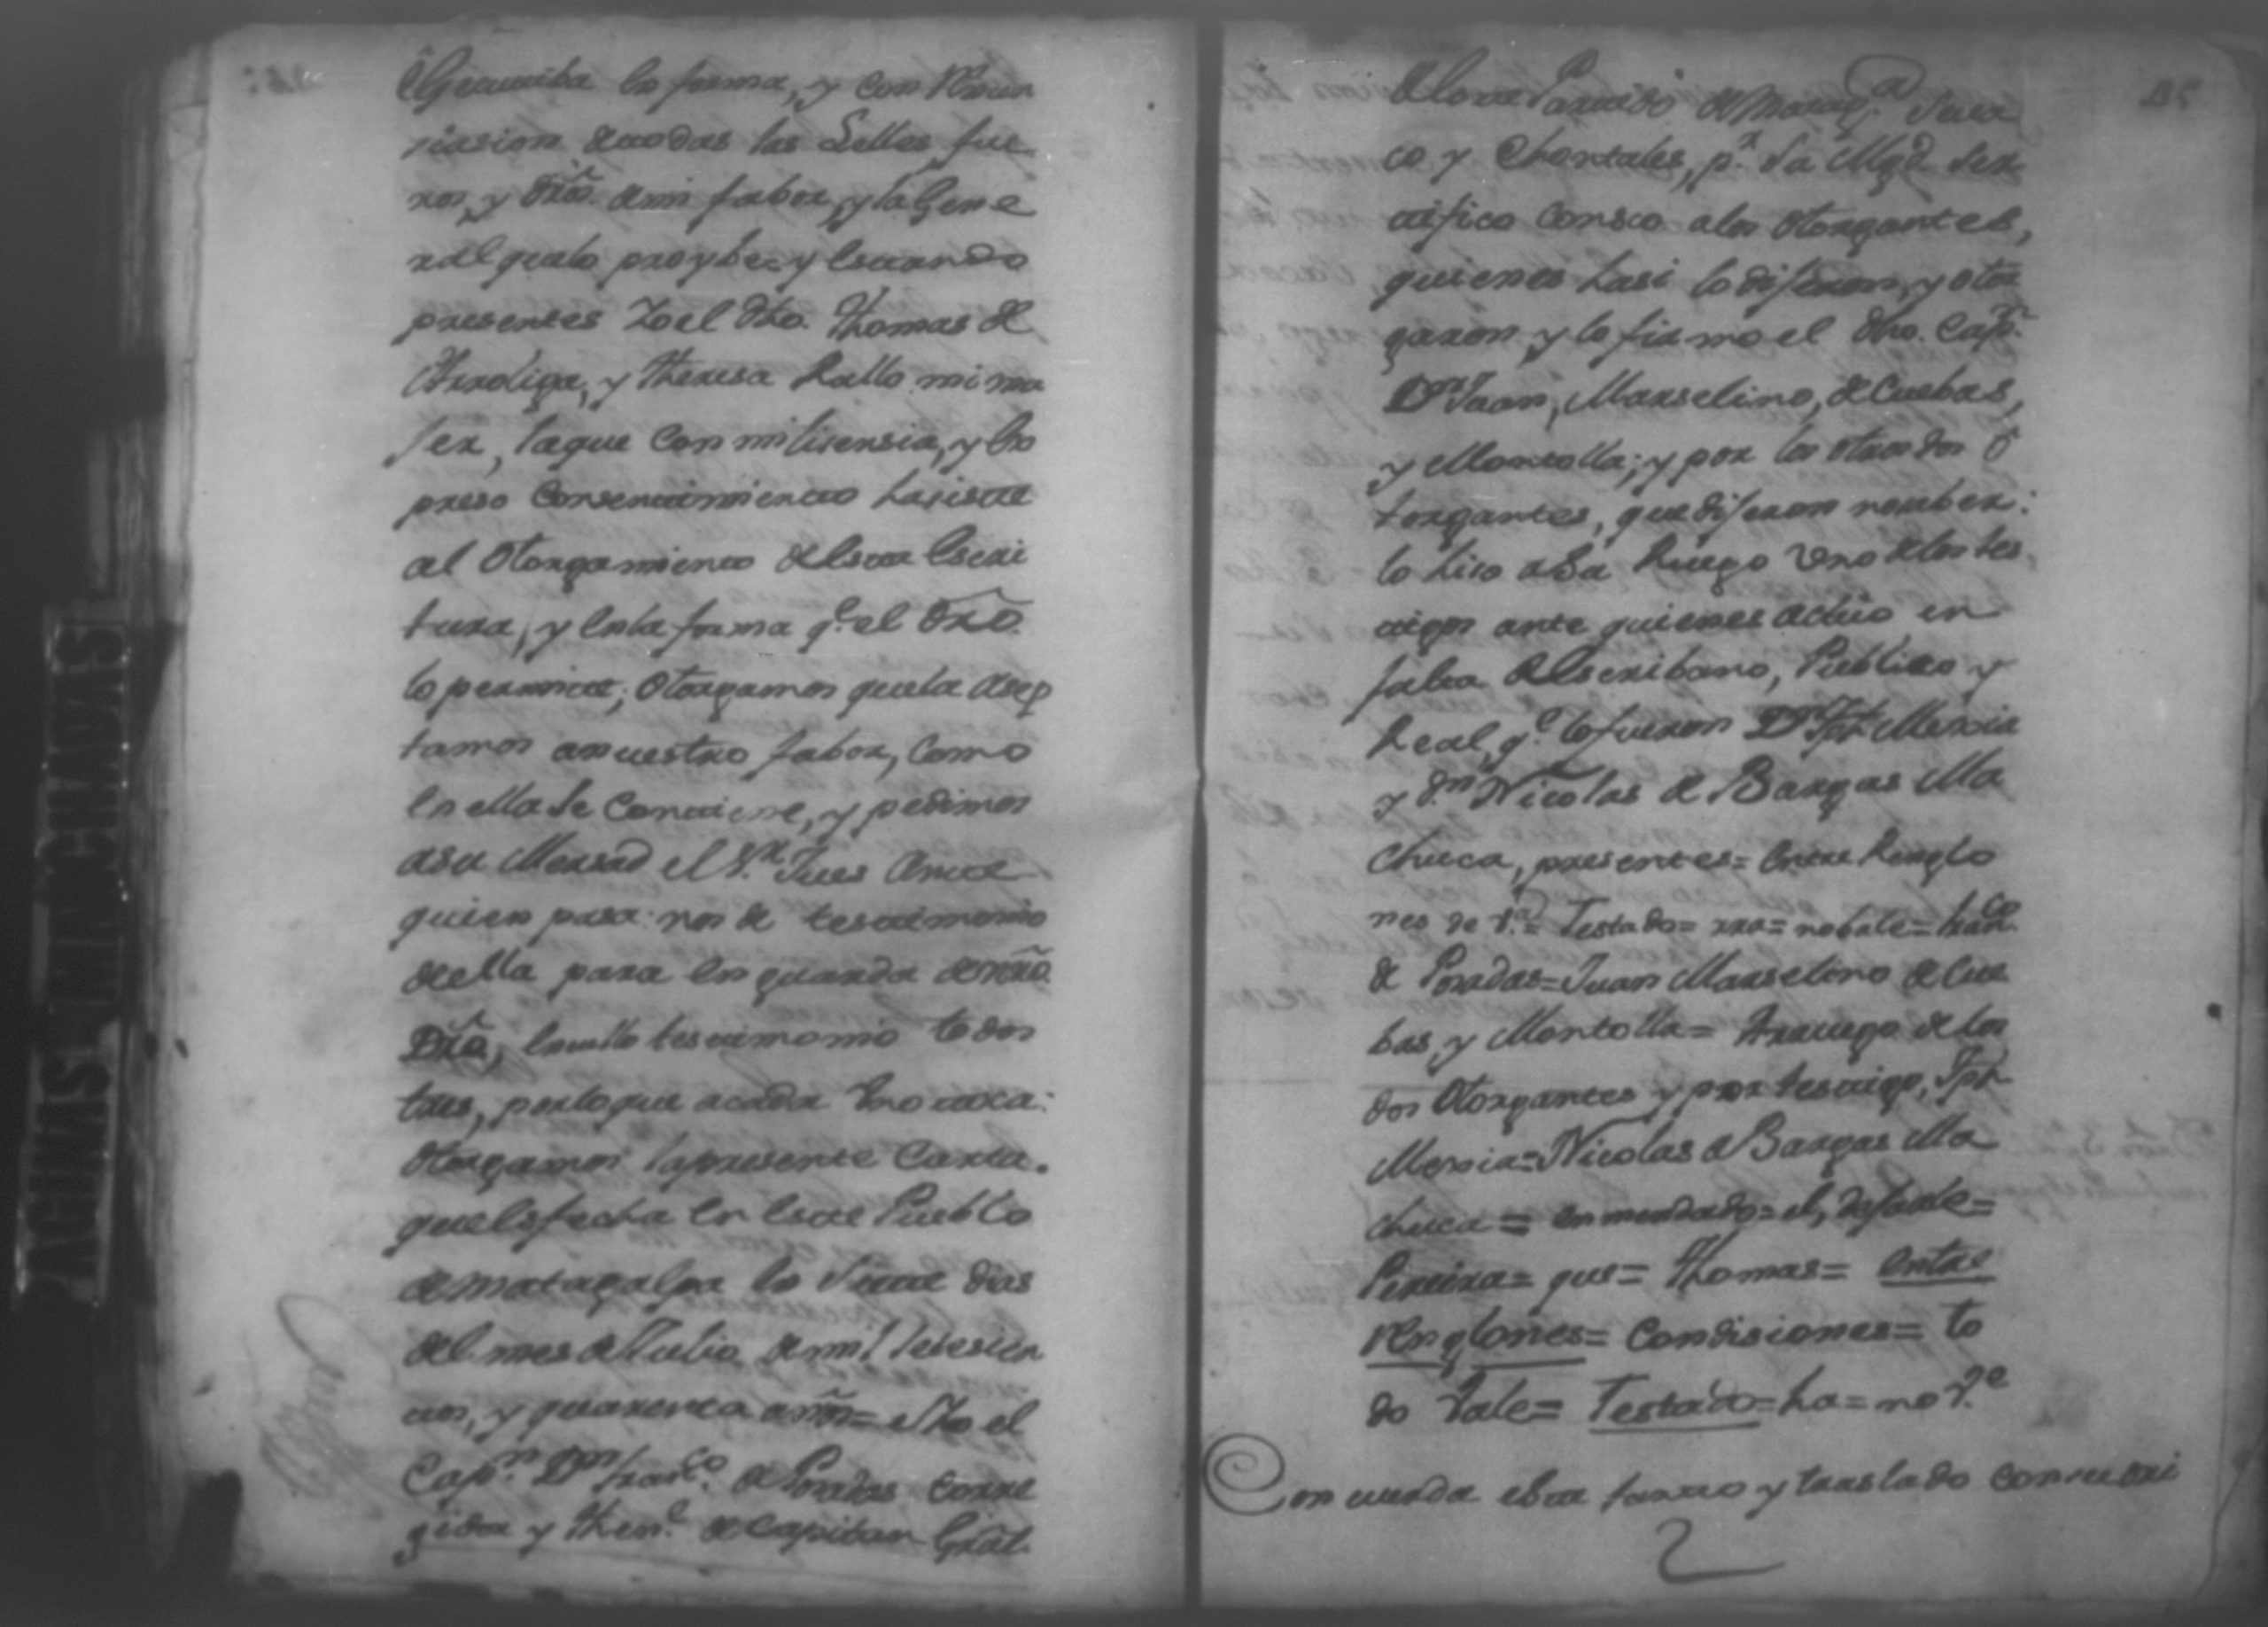 Guarentixa en forma, y con Renun
siasion de todas las Lelles fue
ros, y Dros. de mi fabor, y la Gene
ral que lo proybe = y estando
presentes Yo el dho. Thomas de
Arroliga, y Theresa Rallo mi mu
jer, la que con mi lisensia, y ex
preso Consentimiento hasiste
al Otorgamiento de Esta Escri
tura, y En la forma q.e el Dro.
lo permite; Otorgamos que la asep
tamos a nuestro fabor, Como
En ella se Contiene, y pedimos
a su Mersed el S.r Jues Ante
quien pasa nos de testimonio
de ella para En guarda de nro.
Dro, testimonio todos
tres, por lo que a cada Uno toca:
Otorgamos la presente Carta.
que Es fecha En Este Pueblo
de matagalpa En Siete dias
del mes de Julio de mil setesien
tos, y quarenta años = e Yo el
Cap.n D.n fran.co de Posadas Corre
gidor y Then.e de Capitan Gral.
de Este Partido de Matag.a
co y Chontales, p.r Su Mgd. Ser
tifico Conosco a los Otorgantes,
quienes hasi lo dijeron, y otor
garon y lo firmo el dho. Cap.n
D.n Juan, Marselino, de Cuebas,
y Montolla; y por los otros dos O
torgantes, que dijeron no saber:
lo hiso a Su Ruego Uno de los tes
tigos ante quienes actuo en
falta de Escribano, Publico y
Real q.e lo fueron D.n Jph Mexia
y d.n Nicolas de Bargas Ma
chuca, presentes = Entre Renglo
nes de v.e = Testado = rra = no bale = fran.co
de Posadas = Juan Marselino de Cue
bas y Montolla = A rruego de los
dos Otorgantes y por testigo, Jph
Mexia = Nicolas de Bargas Ma
chuca = enmendado = el,
Pereira = que = Thomas = Entre
renglones = Condisiones = to
do Vale = Testado = ha = no v.e
Concuerda este tanto y traslado con su ori
PAGINAS MANCHADAS